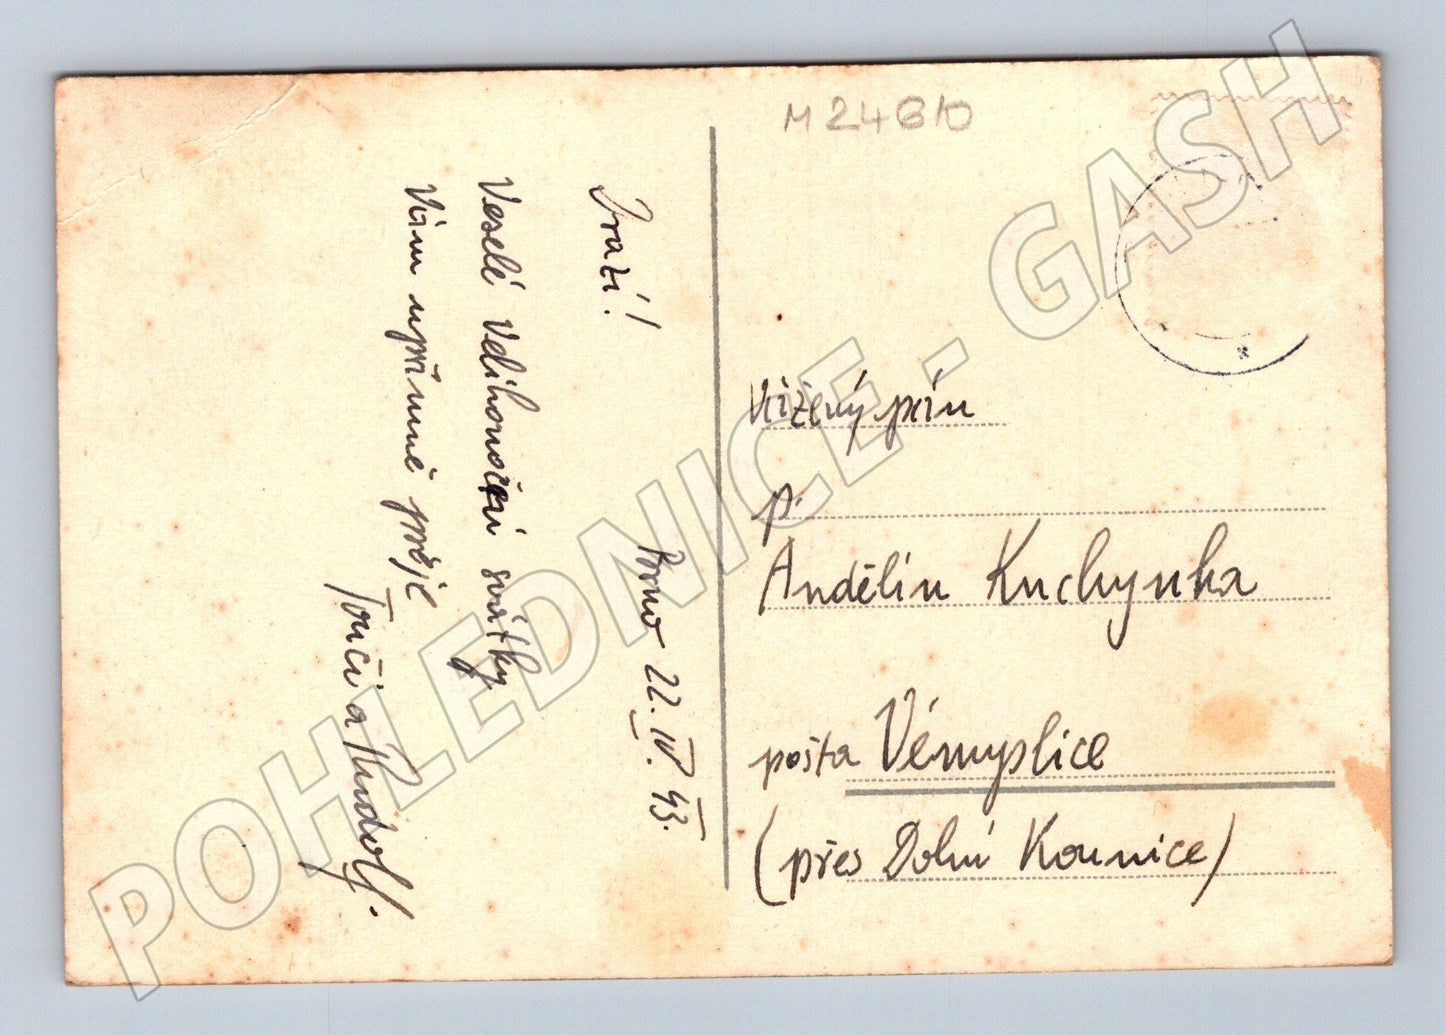 M24610
Brno 22. IV. 43.
Drazí!
Veselé Velikonoční svátky
Vám upřímně přeje
Tonči a Rudolf.
Vážený pán
p.
Andělín Kuchynka
pošta Vémyslice
(přes Dolní Kounice)
POHLEDNICE - GASH